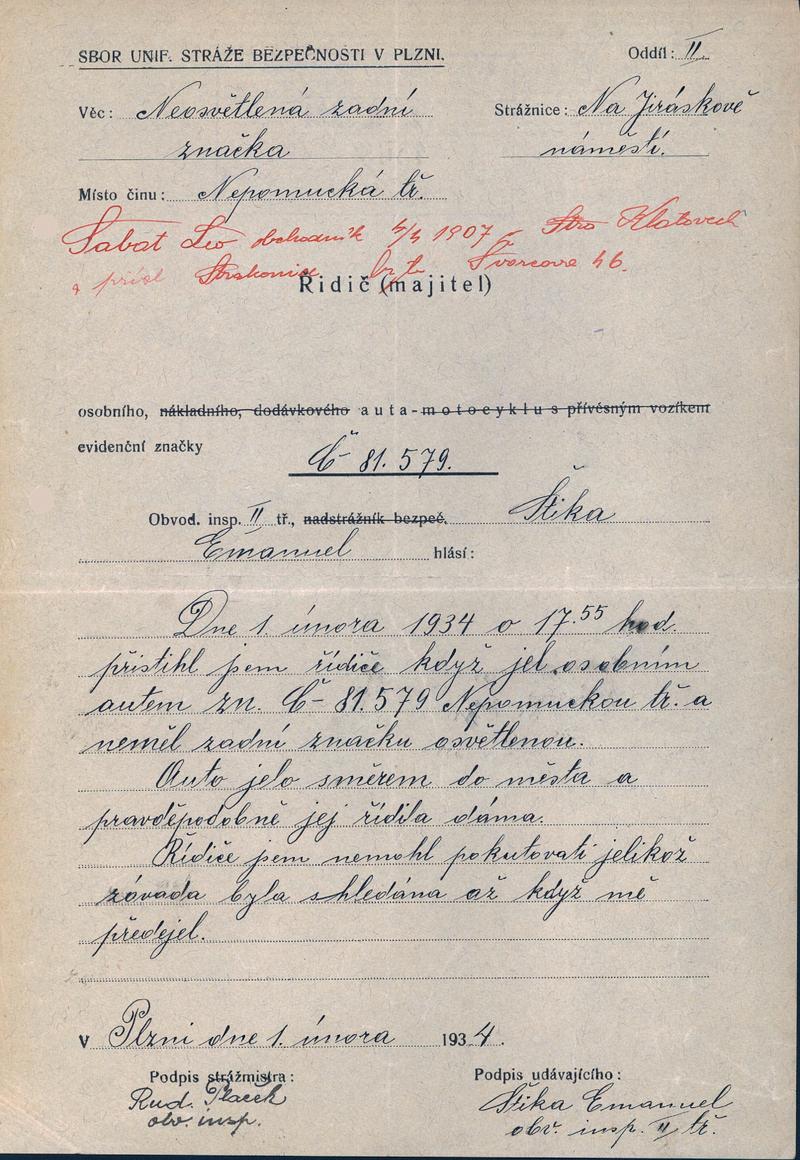 SBOR UNIF. STRÁŽE BEZPEČNOSTI V PLZNI.
Oddíl: II.
Věc: Neosvětlená zadní
značka
Strážnice: Na Jiráskově
náměstí.
Místo činu: Nepomucká tř.
Sabat Leo obchodník 4/4 1907 Klatovech
a přísl Strakonice Švarcova 46.
Řidič (majitel)
osobního, nákladního, dodávkového auta-motocyklu s přívěsným vozíkem
evidenční značky
Č-81.579.
Obvod. insp. II tř., nadstrážník bezpeč. Štika
Emanuel hlásí:
Dne 1. února 1934 o 17.55 hod.
přistihl jsem řidiče když jel osobním
autem zn. Č-81.579 Nepomuckou tř. a
neměl zadní značku osvětlenou.
Auto jelo směrem do města a
pravděpodobně jej řídila dáma.
Řidiče jsem nemohl pokutovati jelikož
závada byla shledána až když mě
předejel.
v Plzni dne 1. února 1934.
Podpis strážmistra:
Rud. Placek
obv. insp.
Podpis udávajícího:
Štika Emanuel
obv. insp. II tř.